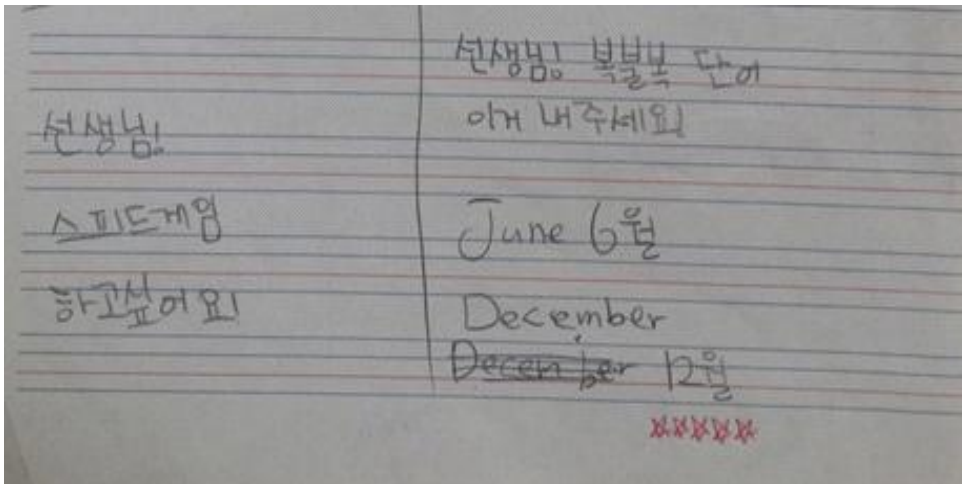 선생님!
스피드게임
하고싶어요!
선생님! 복불복 단어
이거 내주세요!
June 6월
December
December 12월